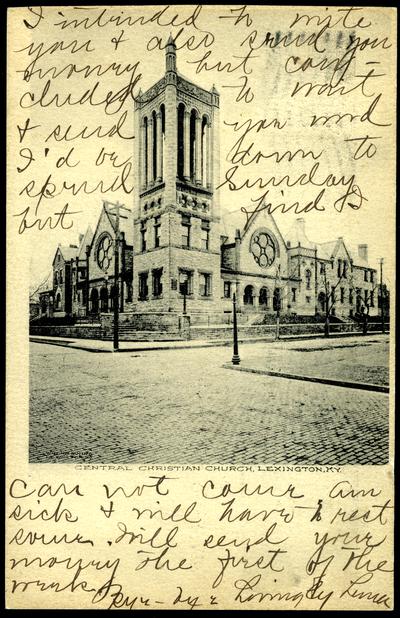 I intended to write
you & also send you
money but con-
cluded to wait
& send you word
I'd be down to
spend Sunday
but find I
CENTRAL CHRISTIAN CHURCH, LEXINGTON, KY.
can not come am
sick & will have to rest
some. Will send your
money the first of the
week.
Bye-bye Lovingly Lena